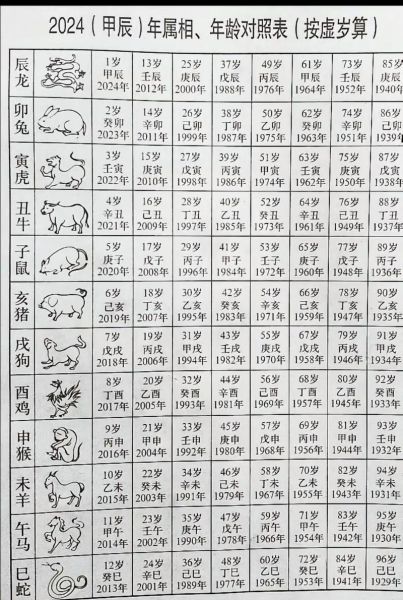 2024（甲辰）年属相、年龄对照表（按虚岁算）
辰龙
1岁 13岁 25岁 37岁 49岁 61岁 73岁 85岁
甲辰 壬辰 庚辰 戊辰 丙辰 甲辰 壬辰 庚辰
2024年 2012年 2000年 1988年 1976年 1964年 1952年 1940年
卯兔
2岁 14岁 26岁 38岁 50岁 62岁 74岁 86岁
癸卯 辛卯 己卯 丁卯 乙卯 癸卯 辛卯 己卯
2023年 2011年 1999年 1987年 1975年 1963年 1951年 1939年
寅虎
3岁 15岁 27岁 39岁 51岁 63岁 75岁 87岁
壬寅 庚寅 戊寅 丙寅 甲寅 壬寅 庚寅 戊寅
2022年 2010年 1998年 1986年 1974年 1962年 1950年 1938年
丑牛
4岁 16岁 28岁 40岁 52岁 64岁 76岁 88岁
辛丑 己丑 丁丑 乙丑 癸丑 辛丑 己丑 丁丑
2021年 2009年 1997年 1985年 1973年 1961年 1949年 1937年
子鼠
5岁 17岁 29岁 41岁 53岁 65岁 77岁 89岁
庚子 戊子 丙子 甲子 壬子 庚子 戊子 丙子
2020年 2008年 1996年 1984年 1972年 1960年 1948年 1936年
亥猪
6岁 18岁 30岁 42岁 54岁 66岁 78岁 90岁
己亥 丁亥 乙亥 癸亥 辛亥 己亥 丁亥 乙亥
2019年 2007年 1995年 1983年 1971年 1959年 1947年 1935年
戌狗
7岁 19岁 31岁 43岁 55岁 67岁 79岁 91岁
戊戌 丙戌 甲戌 壬戌 庚戌 戊戌 丙戌 甲戌
2018年 2006年 1994年 1982年 1970年 1958年 1946年 1934年
酉鸡
8岁 20岁 32岁 44岁 56岁 68岁 80岁 92岁
丁酉 乙酉 癸酉 辛酉 己酉 丁酉 乙酉 癸酉
2017年 2005年 1993年 1981年 1969年 1957年 1945年 1933年
申猴
9岁 21岁 33岁 45岁 57岁 69岁 81岁 93岁
丙申 甲申 壬申 庚申 戊申 丙申 甲申 壬申
2016年 2004年 1992年 1980年 1968年 1956年 1944年 1932年
未羊
10岁 22岁 34岁 46岁 58岁 70岁 82岁 94岁
乙未 癸未 辛未 己未 丁未 乙未 癸未 辛未
2015年 2003年 1991年 1979年 1967年 1955年 1943年 1931年
午马
11岁 23岁 35岁 47岁 59岁 71岁 83岁 95岁
甲午 壬午 庚午 戊午 丙午 甲午 壬午 庚午
2014年 2002年 1990年 1978年 1966年 1954年 1942年 1930年
巳蛇
12岁 24岁 36岁 48岁 60岁 72岁 84岁 96岁
癸巳 辛巳 己巳 丁巳 乙巳 癸巳 辛巳 己巳
2013年 2001年 1989年 1977年 1965年 1953年 1941年 1929年